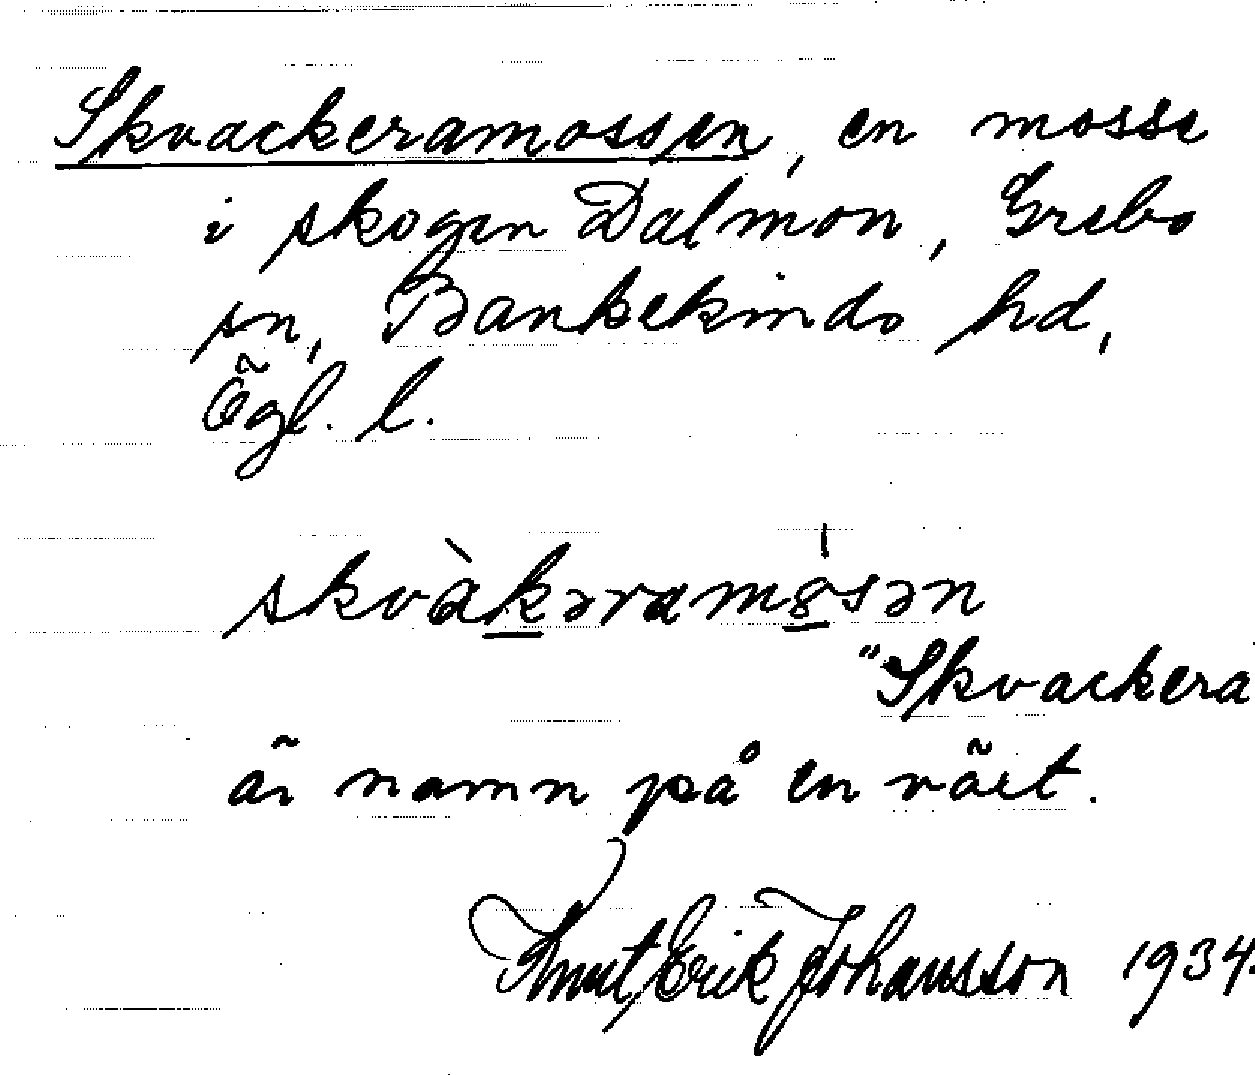 Skvackeramossen, en mosse
i skogen Dalmon, Grebo
sn, Bankekinds hd,
Ögl. l.
skvàkəramȣ̍sən
"Skvackera
är namn på en växt.
Knut Erik Johansson 1934.